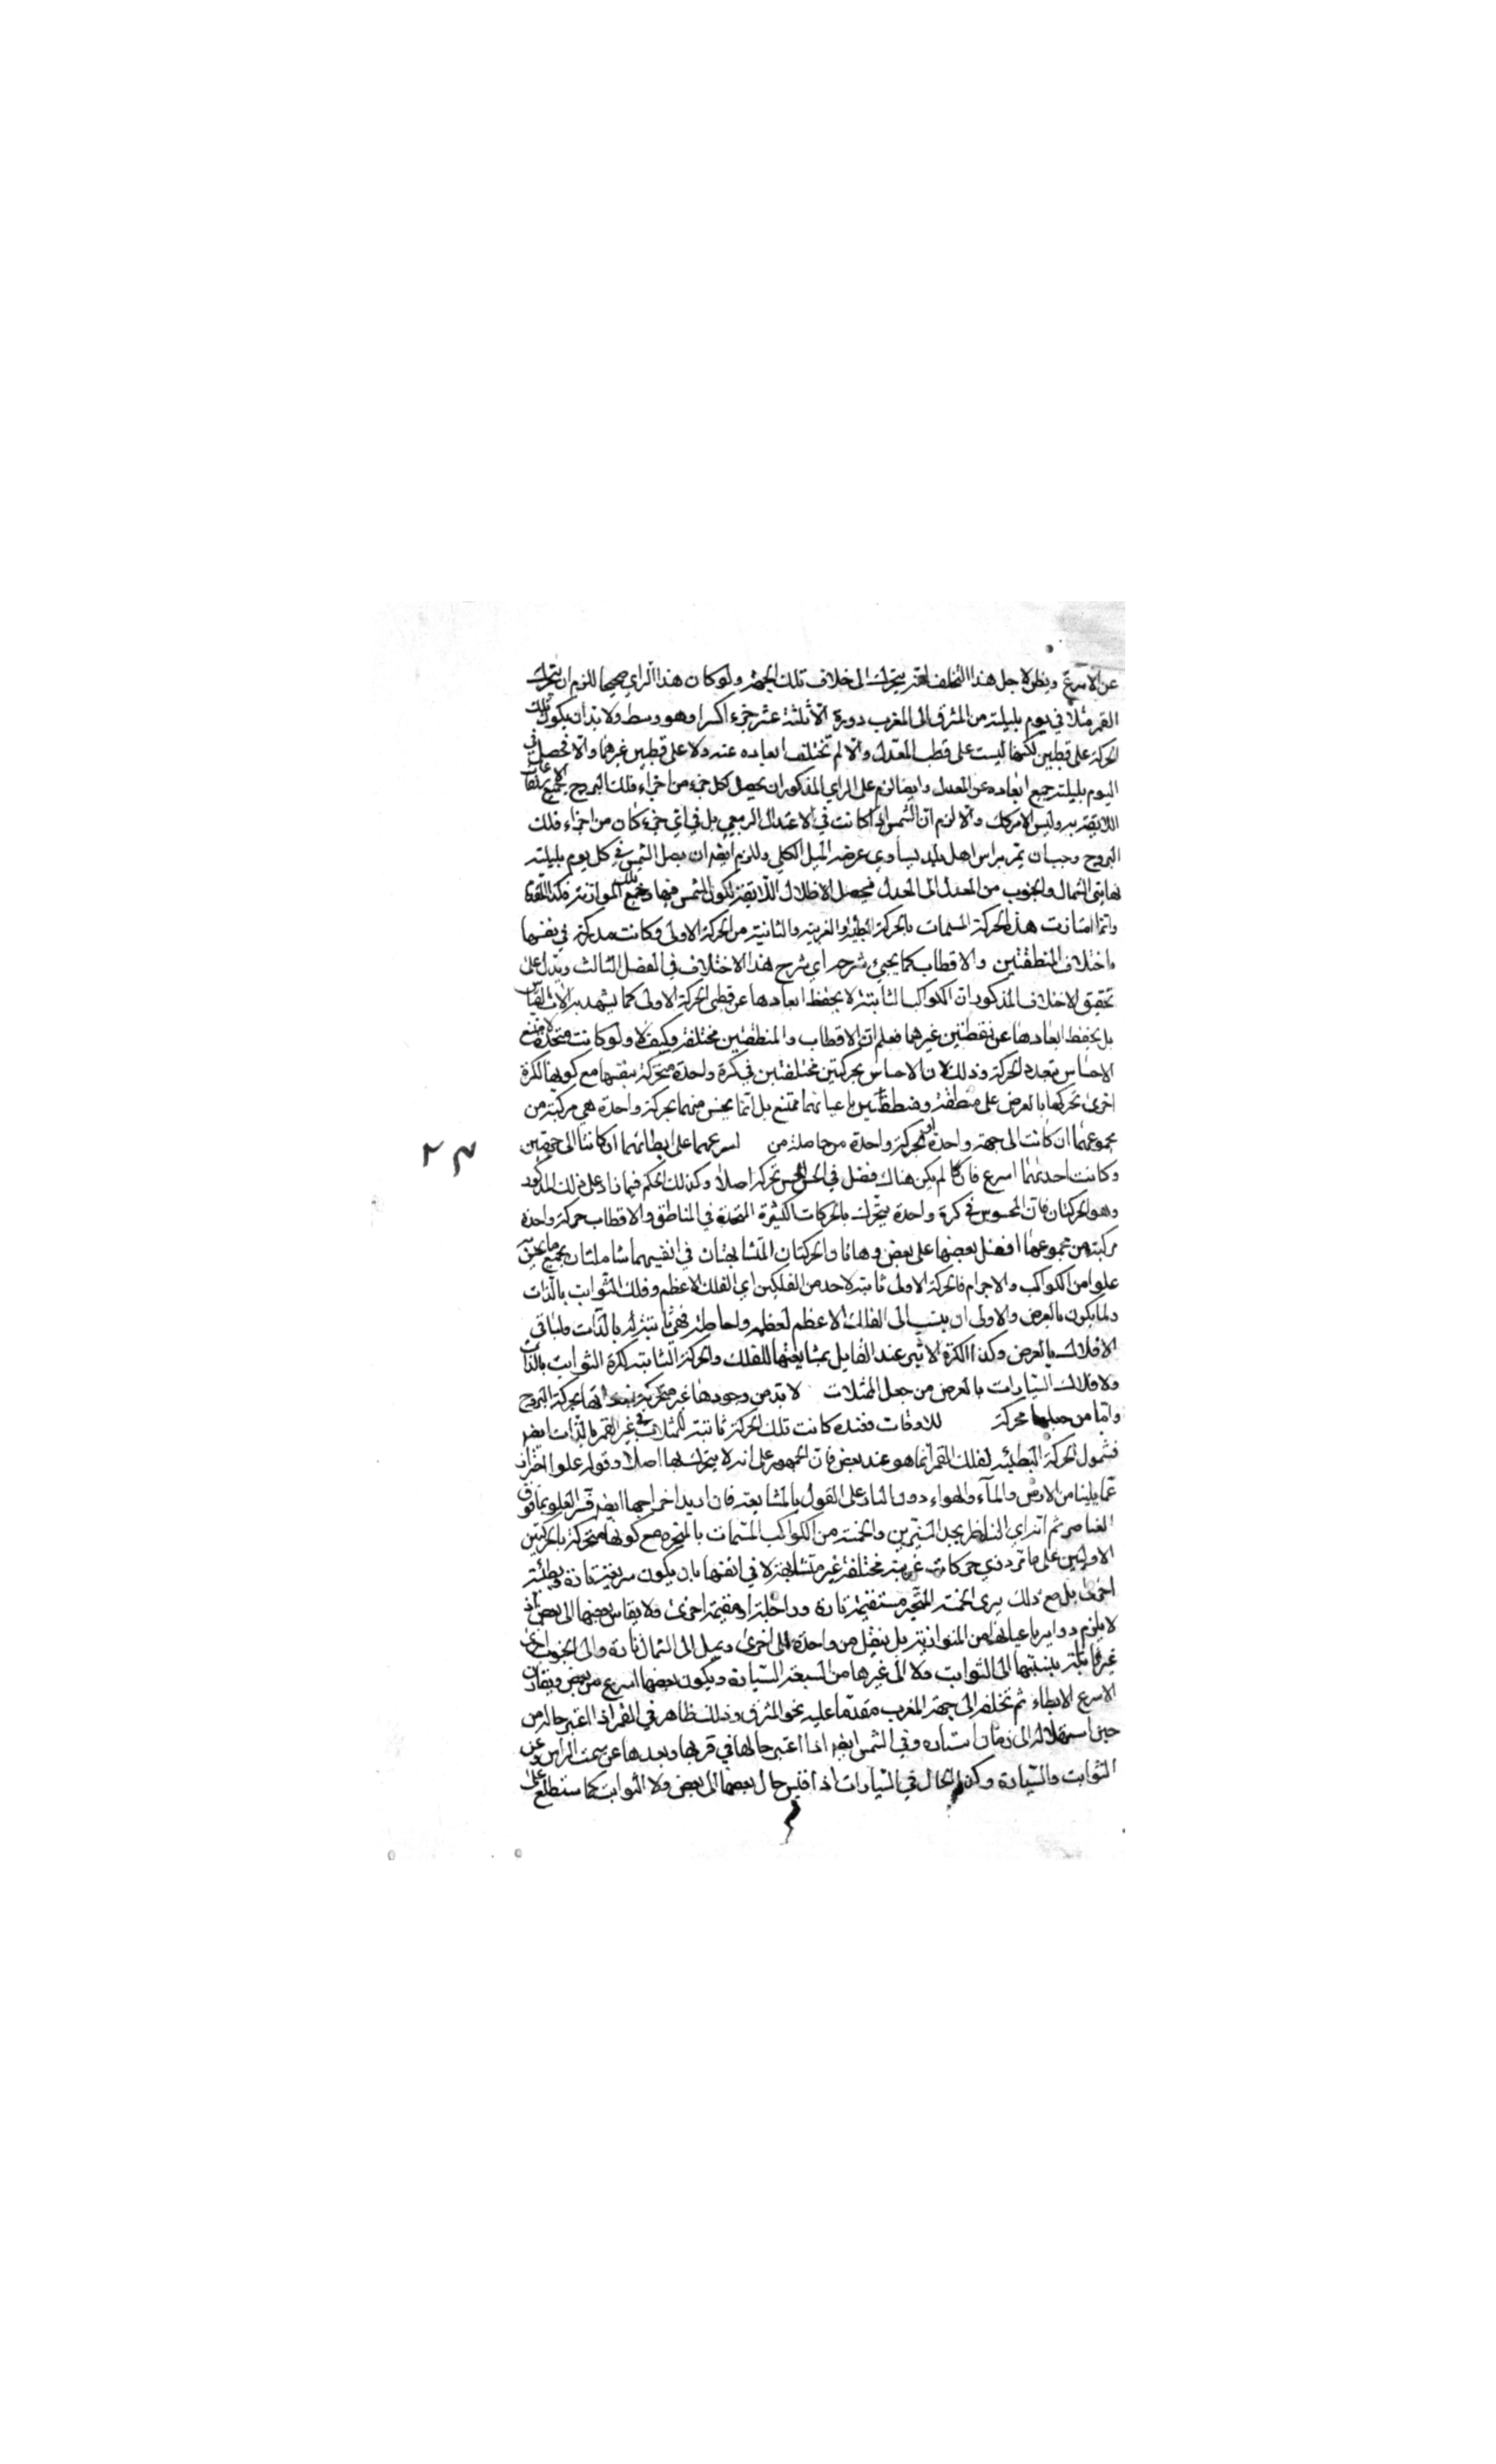 عن الاسرع ويظن لاجل هذا التخلف انه يتحرك الى خلاف تلك الجهة ولو كان هذا الراي صحيحا للزم ان يتحرك
القمر مثلا في يوم بليلته من المشرق الى المغرب دورة الا ثلثة عشر جزء اكسرا وهو وسط ولا بد ان يكون تلك
الحركة على قطبين لكنها ليست على قطب المعدل والا لم تختلف ابعاده عنه ولا على قطبين غيرهما والا فحصل في
اليوم بليلته جميع ابعاده عن المعدل وايضا لزم على الراي المذكور ان يحصل كل جزء من اجزاء فلك البروج لجميع الارتفاعات
اللايقة به وليس الامر كك والا لزم ان الشمس اذا كانت في الاعتدال الربيعي بل في اي جزء كان من اجزاء فلك
البروج وجب ان يمر براس اهل بلد يساوي عرضه الميل الكلي وللزم ايضا ان يصل الشمس في كل يوم بليلته
نهايتي الشمال والجنوب من المعدل الى المعدل فيحصل الاظلال اللايقة لكون الشمس فيها وجميع تلك الموازية
وانما امتازت هذه الحركة المسمات بالحركة البطيئة والغربية والثانية من الحركة الاولى وكانت مدركة في نفسها
باختلاف المنطقتين والاقطاب كما يجيئ شرحه اي شرح هذا الاختلاف في الفصل الثالث ويدل على
تحقيق الاختلاف المذكور ان الكواكب الثابتة لا يحفظ ابعادها عن قطبي الحركة الاولى كما يشهد به الات القياس
بل يحفظ ابعادها عن نقطتين غيرهما فعلم ان الاقطاب والمنطقتين مختلفة وكيف لا ولو كانت متحدة لامتنع
الاحساس بتعدد الحركة وذلك لان الاحساس بحركتين مختلفتين في كرة واحدة متحركة بنفسها مع كونها لكرة
اخرى تحركها بالعرض على منطقة ومنطقتين باعيانهما ممتنع بل انما يحس منهما بحركة واحدة هي مركبة من
مجموعهما ان كانت الى جهة واحدة او بحركة واحدة حاصلة من اسرعهما على ابطائهما ان كانتا الى جهتين
وكانت احديهما اسرع فان لم يكن هناك فضل في الحس لم يحس بحركة اصلا وكذلك الحكم فيما زاد على ذلك المذكور
وهو الحركتان فان المحسوس في كرة واحدة يتحرك بالحركات الكثيرة المتحدة في المناطق والاقطاب حركة واحدة
مركبة من مجموعها او فضل بعضها على بعض وهاتان الحركتان المتشابهتان في انفسهما شاملتان لجميع ما يحس به
علوا من الكواكب والاجرام فالحركة الاولى ثابتة لاحد من الفلكين اي الفلك الاعظم وفلك الثوابت بالذات
ولما يكون بالعرض والاولى ان ينسب الى الفلك الاعظم لعظمه واحاطته فهي ثابتة له بالذات ولباقي
الافلاك بالعرض وكذا الكرة الاثير عند القايل بمشايعتها للفلك والحركة الثابتة لكرة الثوابت بالذات
ولافلاك السيارات بالعرض من جعل الممثلات لا بد من وجودها غير متحركة بحركة البروج
واما من جعلها محركة للاوجات فعنده كانت تلك الحركة ثابتة للمثلات في غير القمر بالذات ايضا
فشمول الحركة البطيئة لفلك القمر انما هو عند بعض فان الجمهور على انه لا يتحرك بها اصلا وقوله علوا احتراز
عما يلينا من الارض والماء والهواء دون النار على القول بالمشايعة فان اريد اخراجها ايضا فسر العلو بما فوق
العناصر ثم اذا راى الناظر يجد النيرين والخمسة من الكواكب المسمات بالمتحيرة مع كونها متحركة بالحركتين
الاوليين على ما مر ذي حركات غريبة مختلفة غير متشابهة لا في انفسها بان يكون سريعة تارة وبطيئة
اخرى بل مع ذلك يرى الخمسة المتحيرة مستقيمة تارة وراجعة او مقيمة اخرى ولا يقاس بعضها الى بعض اذ
لا يلزم دواير باعيانها من المتوازية بل ينتقل من واحدة الى اخرى ويميل الى الشمال تارة والى الجنوب اخرى
بنسبتها الى الثوابت ولا الى غيرها من السبعة السيارة ويكون بعضها اسرع من بعض ويقارن
الاسرع الابطاء ثم تخلفه الى جهة المغرب متقدما عليه نحو المشرق وذلك ظاهر في القمر اذا اعتبر حاله من
حين استهلاله الى زمان استتاره وفي الشمس ايضا اذا اعتبر حالها في قربها وبعدها عن سمت الراس وعن
الثوابت والسيارة وكذا الحال في السيارات اذا قيس حال بعضها الى بعض ولا الثوابت كما ستطلع على